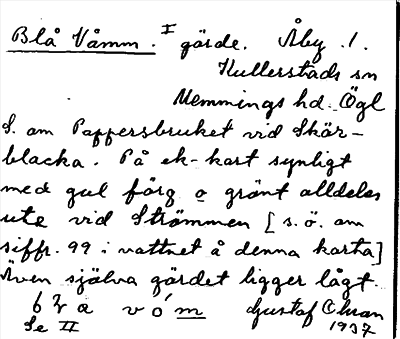 Blå Våmm. I gärde. Åby. 1.
Kullerstads sn
Memmings hd. Ögl
S. om Pappersbruket vid Skär-
blacka. På ek-kart synligt
med gul färg o grönt alldeles
ute vid Strömmen [s.ö. om
siffr. 99 i vattnet å denna karta]
Även själva gärdet ligger lågt.
vóm Gustaf Chran
Se II 1937